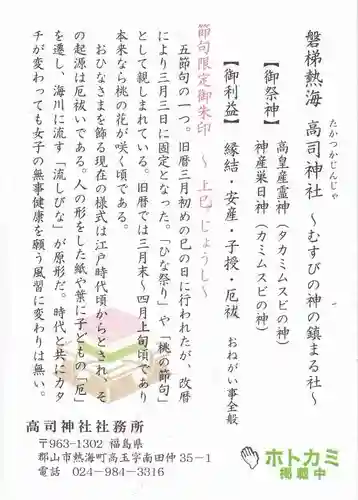 磐梯熱海 高司神社 ～むすびの神の鎮まる社～
たかつかじんじゃ
【御祭神】 高皇産霊神(タカミムスビの神)
神産巣日神(カミムスビの神)
【御利益】 縁結・安産・子授・厄祓 おねがい事全般
節句限定御朱印 ～上巳 じょうし～
五節句の一つ。旧暦三月初めの巳の日に行われたが、改暦
により三月三日に固定となった。「ひな祭り」や「桃の節句」
として親しまれている。旧暦では三月末～四月上旬頃であり
本来なら桃の花が咲く頃である。
おひなさまを飾る現在の様式は江戸時代頃からとされ、そ
の起源は厄祓いである。人の形をした紙や葉に子どもの「厄」
を遷し、海川に流す「流しびな」が原形だ。時代と共にカタ
チが変わっても女子の無事健康を願う風習に変わりは無い。
高司神社社務所
〒963-1302 福島県
郡山市熱海町高玉字南田仲35-1
電話 024-984-3316
ホトカミ
掲載中